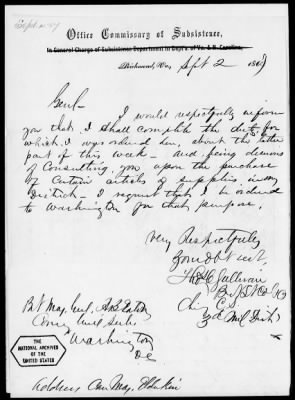 Sept 2 67
Office Commissary of Subsistence,
In General Charge of Subsistence Department in Dep'ts. of Va. & N. Carolina,
Richmond, Va., Sept 2 1867
Genl-
I would respectfully inform
you that I shall complete the duty for
which I was ordered here, about the latter
part of this week - and being desirous
of consulting you upon the purchase
of certain articles of supplies in my
District - I request that I be ordered
to Washington for that purpose.
Very Respectfully
Your Obt Servt,
Sullivan
Bt Maj. Genl, A B Eaton
Comy Genl Subs.
Washington
DC
THE
NATIONAL ARCHIVES
OF THE
UNITED STATES
Address Care Maj.